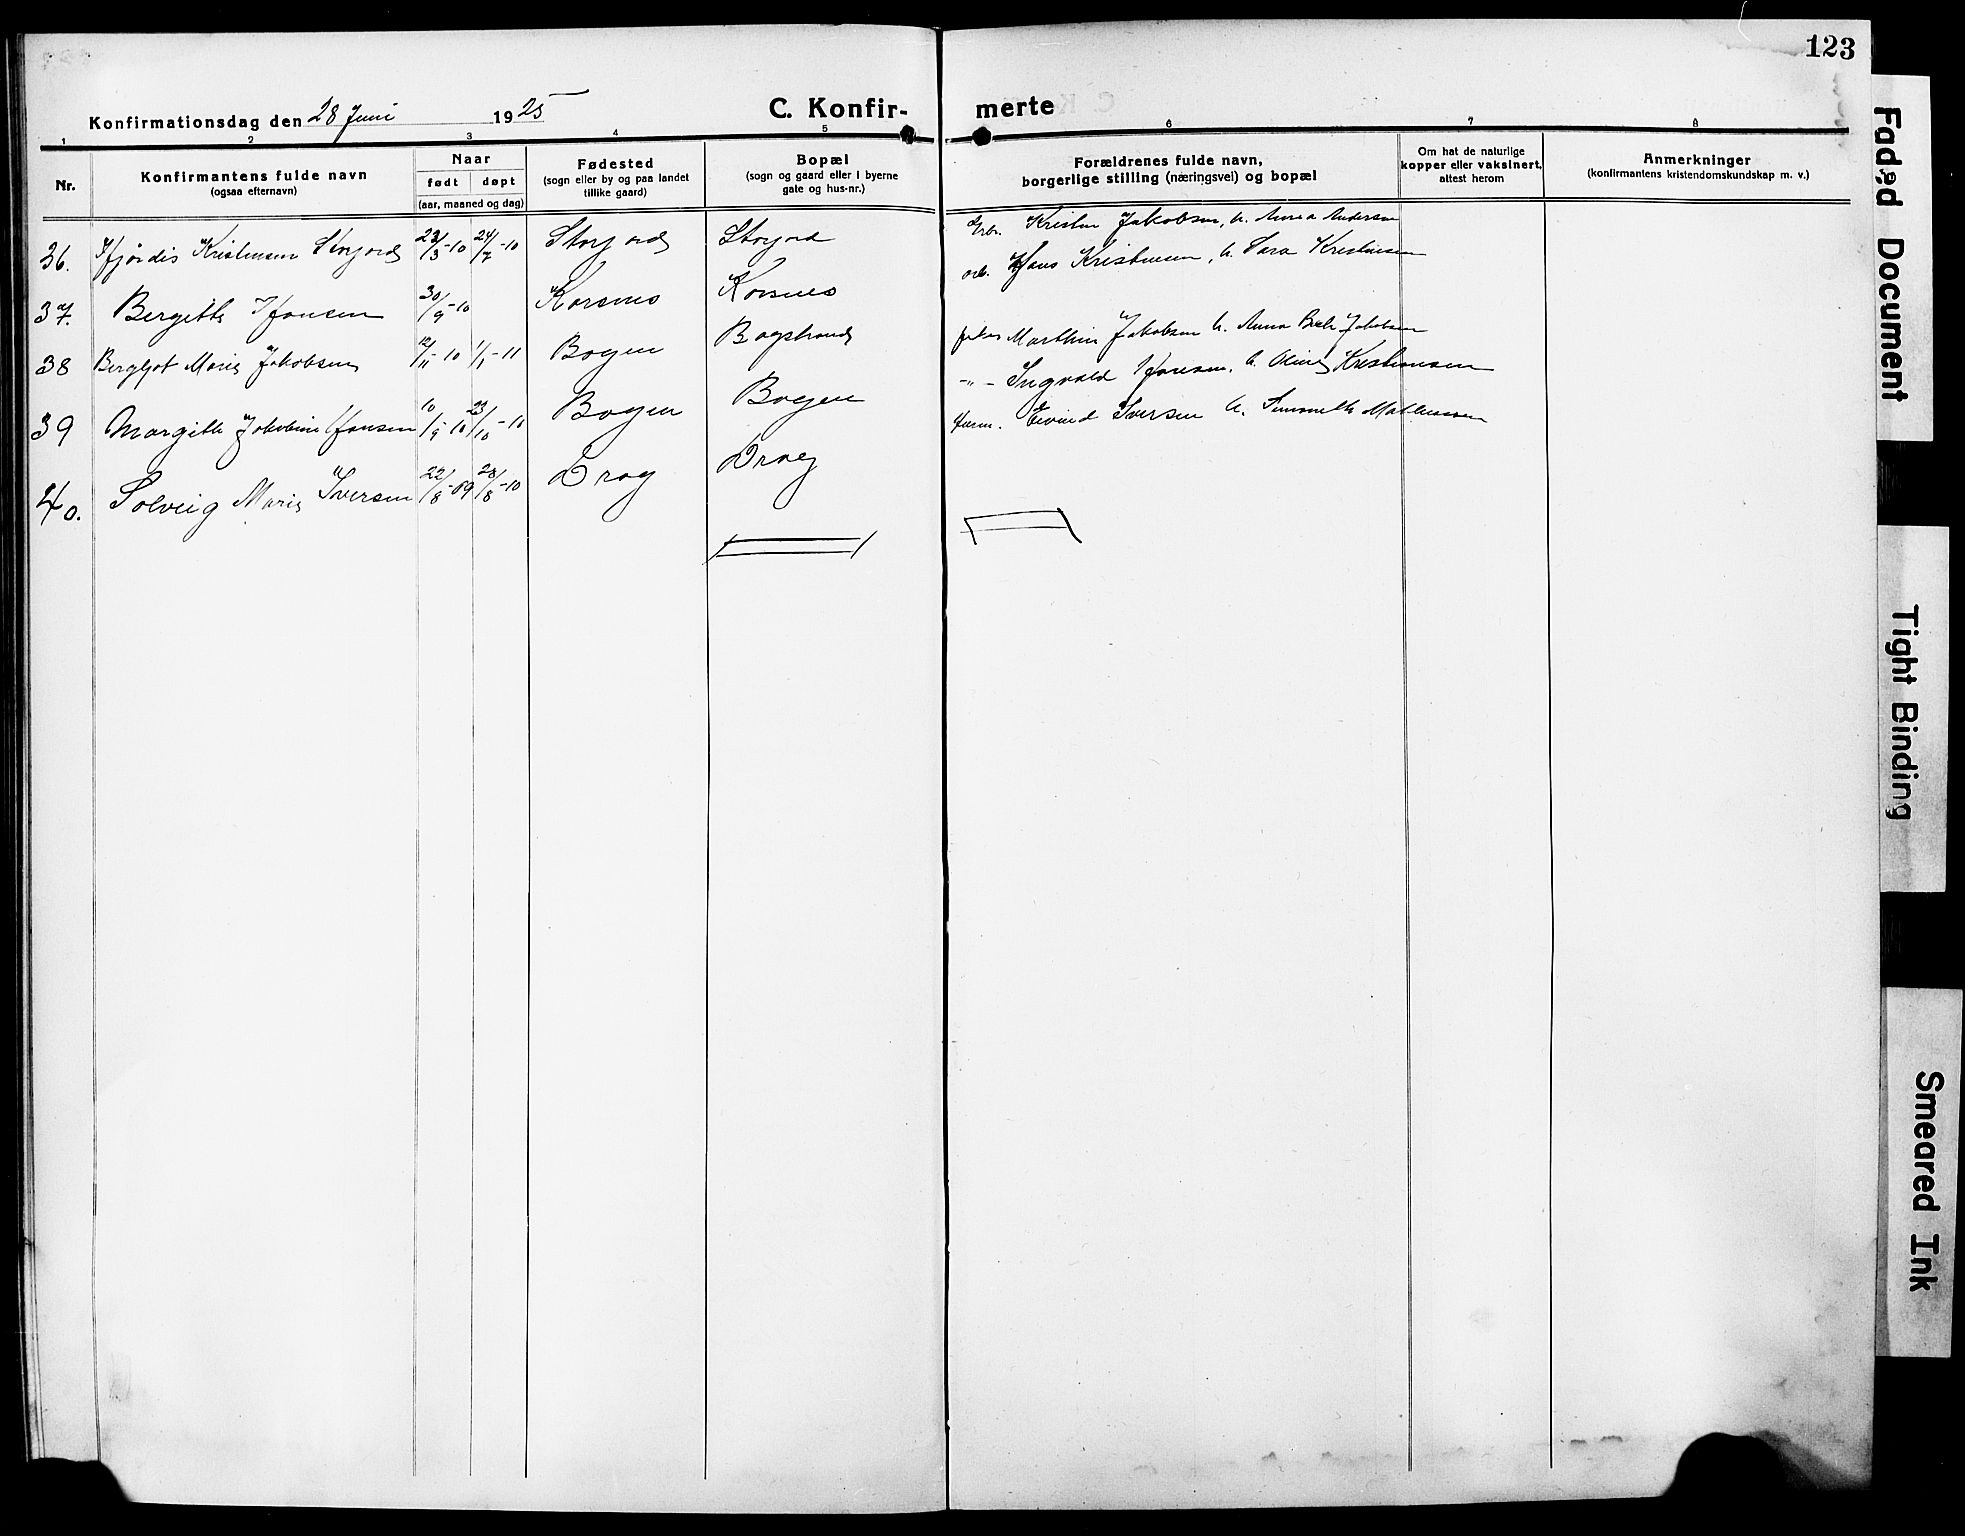 123
Konfirmationsdag den 28 Juni 1925
C. Konfir- merte
1 2 3 4 5 6 7 8
Nr.
Konfirmantens fulde navn
(ogsaa efternavn)
Naar
født døpt
(aar, maaned og dag)
Fødested
(sogn eller by og paa landet
tillike gaard)
Bopæl
(sogn og gaard eller i byerne
gate og hus-nr.)
Forældrenes fulde navn,
borgerlige stilling (næringsvei) og bopæl
Om hat de naturlige
kopper eller vaksinert,
attest herom
Anmerkninger
(konfirmantens kristendomskundskap m. v.)
36. Hjørdis Kristensen Storjord 23/3-10 24/7-10 Storjord Storjord Kristen Jakobsen, h. Anna Andersen
37. Bergitte Hansen 30/9-10 Korsnes Korsnes Hans Kristensen, h. Sara Kristensen
38 Bergljot Marie Jakobsen 12/11-10 1/1-11 Bogen Bogstrand Marthin Jakobsen h. Anna Jakobsen
39 Margith Jakobine Hansen 10/9-10 23/10-10 Bogen Bogen -"- Ingvald Hansen, h. Kristiansen
40. Solveig Marie Iversen 22/8-09 28/8-10 Drag Drag Eivind Iversen h.
Faded Document
Tight Binding
Smeared Ink